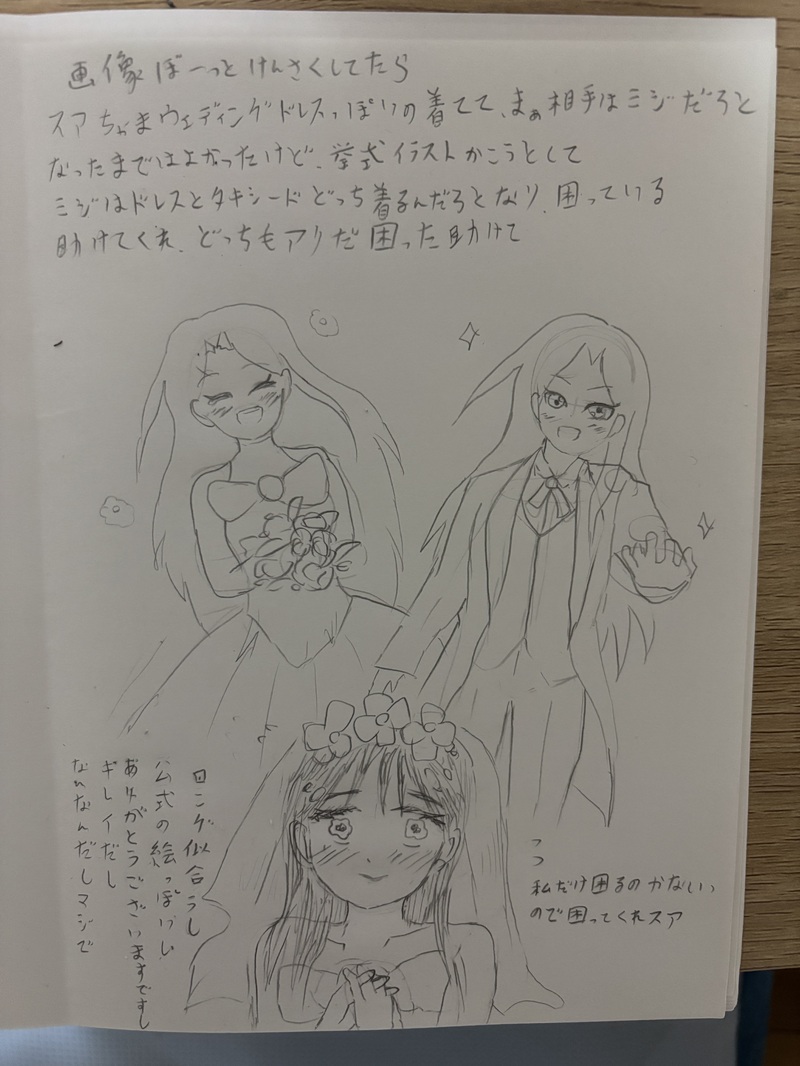 画像ぼーっとけんさくしてたら
スアちゃまウェディングドレスっぽいの着てて、まぁ相手はミジだろと
なったまではよかったけど、挙式イラストかこうとして
ミジはドレスとタキシードどっち着るんだろとなり、困っている
助けてくれ、どっちもアリだ困った助けて
ロング似合うし
公式の絵っぽいし
ありがとうございますですし
キレイだし
なんなんだしマジで
私だけ困るの
ので困ってくれスア